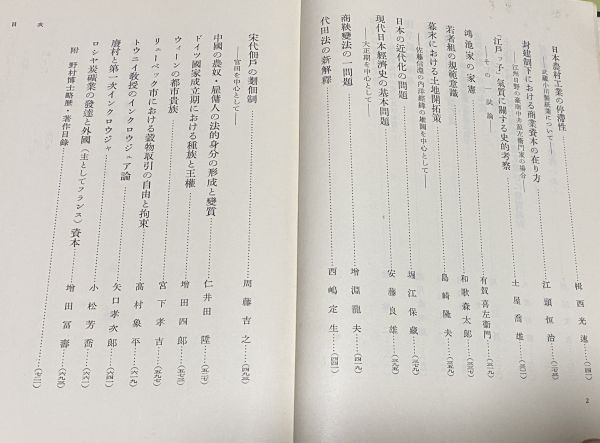 日本農村工業の停滯性
――武藏小川製紙業について――
楫西光速…(一四一)
封建制下における商業資本の在り方
――江州日野の豪商中井源左衞門家の場合――
江頭恒治…(一七一)
「江戸ッ子」氣質に關する史的考察
――その一試論――
土屋喬雄…(二三一)
鴻池家の家憲
有賀喜左衞門…(二一九)
若者組の規範意識
和歌森太郎…(二三七)
幕末における土地開拓策
――佐藤信淵の内洋經緯の堀圖を中心として――
島崎隆夫…(三五三)
日本の近代化の問題
――大正期を中心として――
堀江保藏…(三七九)
現代日本經濟史の基本問題
安藤良雄…(三九五)
商鞅變法の一問題
增淵龍夫…(四一九)
代田法の新解釋
西嶋定生…(四四一)
宋代佃戸の劃佃制
――官田を中心として――
周藤吉之…(四九三)
中國の農奴・雇傭人の法的身分の形成と變質
仁井田陞…(五二七)
ドイツ國家成立期における種族と王權
增田四郎…(五七三)
ウィーンの都市貴族
宮下孝吉…
リューベック市における穀物取引の自由と拘束
高村象平…(五九七)
トウニイ教授のインクロウジュア論
矢口孝次郎…(六四一)
廢村と第一次インクロウジャ
小松芳喬…(六六一)
ロシヤ炭礦業の發達と外國(主としてフランス)資本
增田冨壽…(六九三)
附 野村博士略歷・著作目錄…(七二一)
目次
2